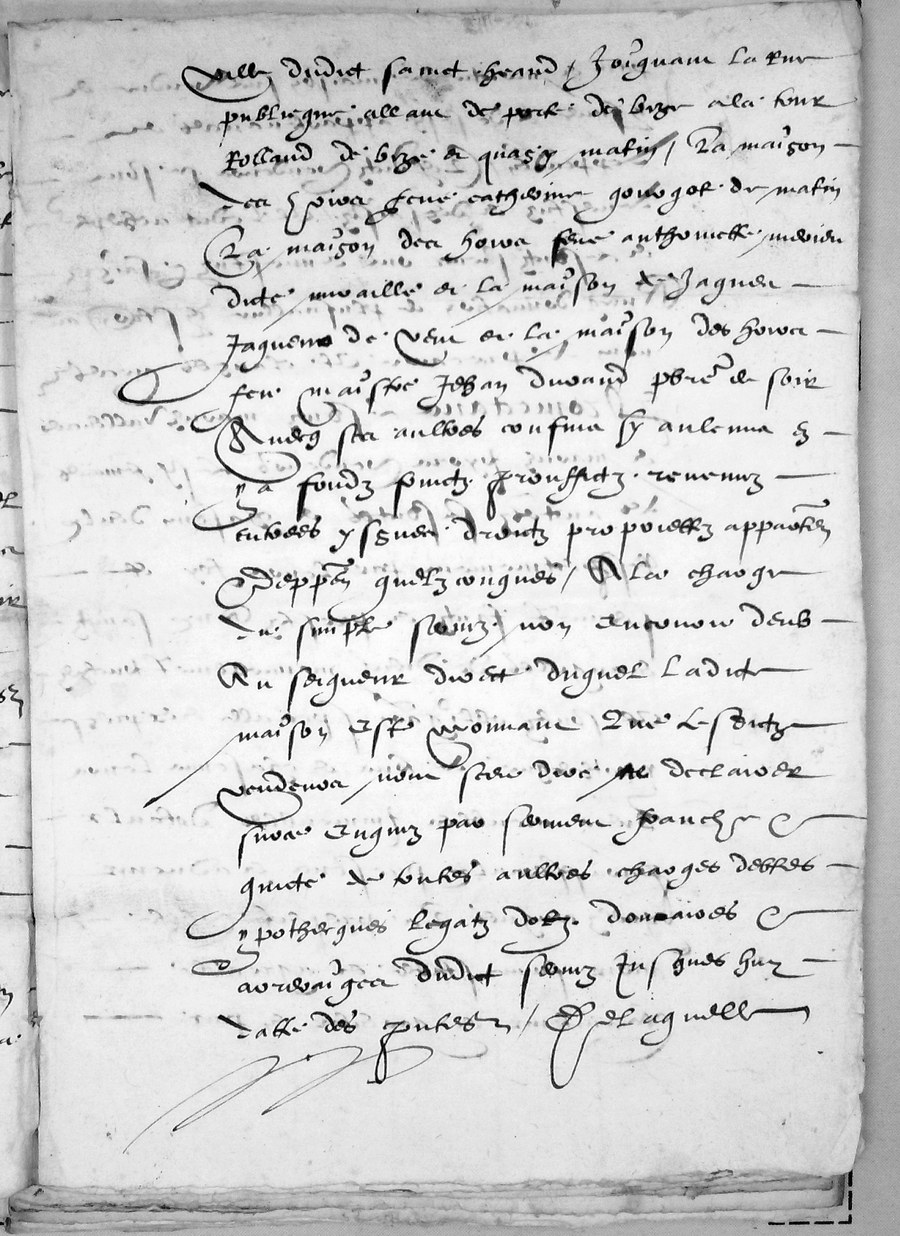 ville dudict sainct heand / Joignant la rue
publicque allant de porte de bize a la tour
Rolland de bize et quasy matin / La maison
des hoirs feue catherine gouigot de matin
La maison des hoirs feue anthoinette
dicte muraille et la maison de Jaques
Jaquem de vent et la maison des hoirs
feu maistre Jehan durand pbre de soir
Avecq ses aultres confins sy aulcuns en
y a fondz fruictz prouffictz revenuz
entrees yssues droictz proprietez appartén
Deppén quelzconques / A la charge
du simple servis non encouru deub
Au seigneur direct duquel ladicte
maison est mouvant Que lesdictz
vendeurs nont sceu dire ne declairer
sur ce enquis par serment franche &
quicte de toutes aultres charges debtes
ypothecques legatz dotz douaires &
arreraiges dudict servis Jusques huy
datte des pntes / De laquelle